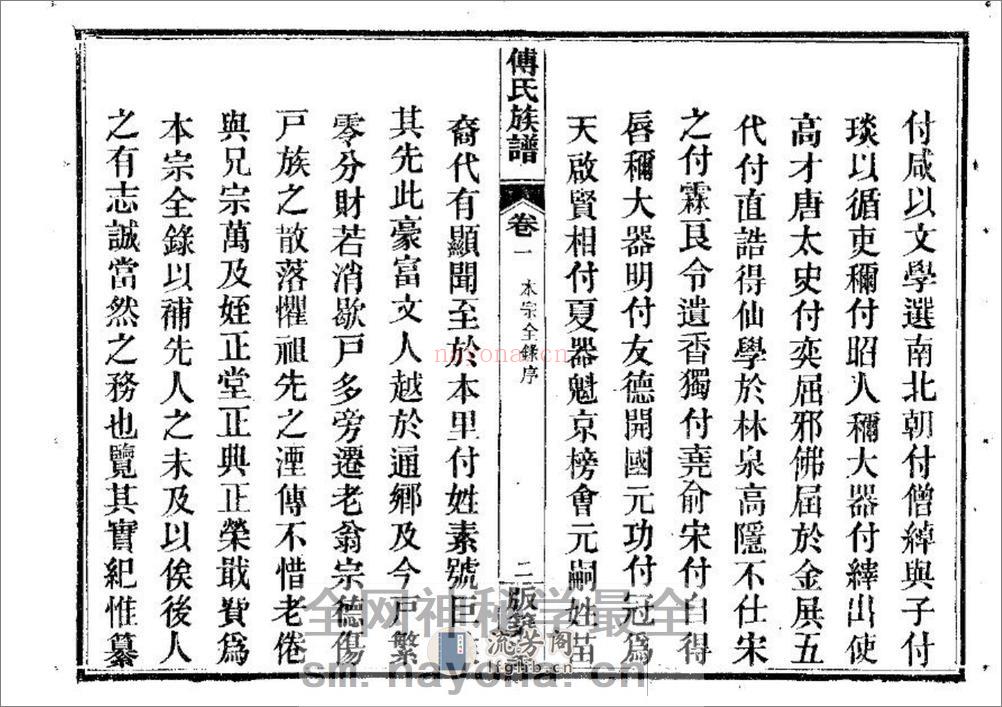 付咸以文學選南北朝付僧綽與子付
琰以循吏稱付昭人稱大器付縡出使
高才唐太史付奕屈邪佛屈於金展五
代付直誥得仙學於林泉高隱不仕宋
之付霖艮令遺香獨付堯俞宋付自得
唇稱大器明付友德開國元功付冠爲
天啟賢相付夏器魁京榜會元嗣姓苗
傅氏族譜
卷一
本宗全錄序
二
版築
裔代有顯聞至於本里付姓素號巨
其先此豪富文人越於通鄉及今戸繁
零分財若消歇戸多旁遷老翁宗德傷
戸族之散落懼祖先之湮傳不惜老倦
與兄宗萬及姪正堂正典正榮戢費爲
本宗全錄以補先人之未及以俟後人
之有志誠當然之務也覽其實紀惟纂
nayona.cn
全网神秘学最全
流芳阁
lfglib.cn
sm.nayona.cn